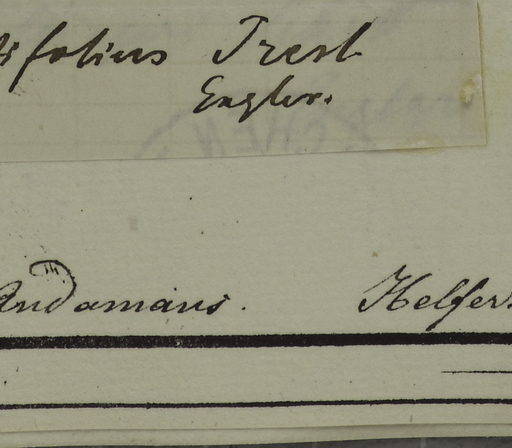 ifolius Presl
Engler.
Andamans. Helfer